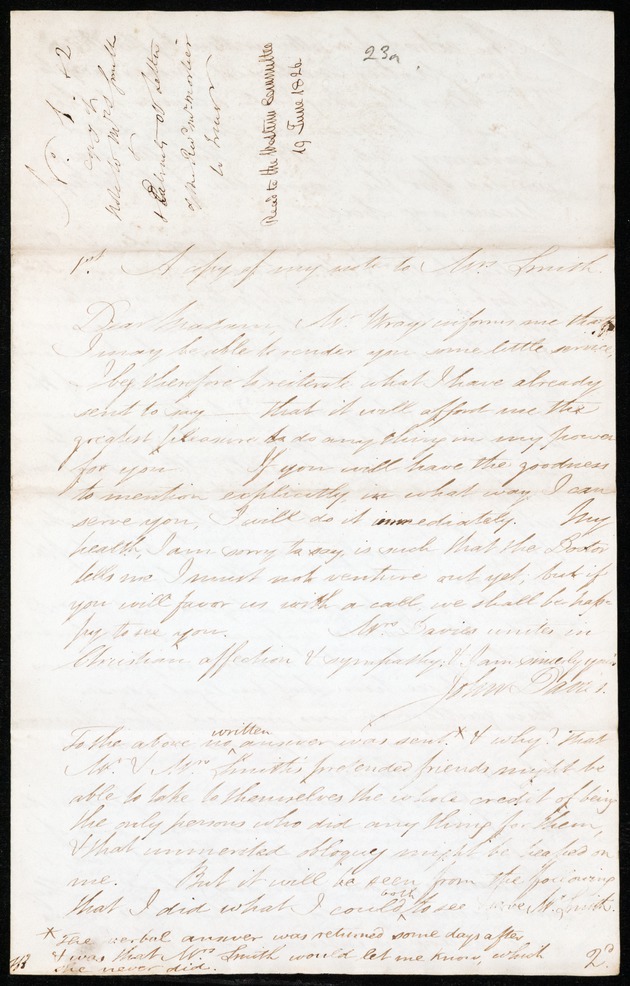 23a
No. 1. 22
Copy of
Note to Mrs Smith
& Extract of letter
of the Revd Mr Mortier
to
Read to the Western Committee
19 June 1826
1st A copy of my note to Mrs Smith.
Dear Madam, Mr Wray informs me that
I may be able to render you some little service,
I beg therefore to reiterate what I have already
sent to say — that it will afford me the
greatest pleasure to do any thing in my power
for you. If you will have the goodness
to mention explicitly in what way I can
serve you, I will do it immediately. My
health, I am sorry to say is such that the Doctor
tells me I must not venture out yet; but if
you will favor us with a call, we shall be hap-
py to see you. Mrs Davies unites in
Christian affection & sympathy, & I am sincerely yours
John Davies.
To the above no written answer was sent.* & why? that
Mr & Mrs Smith's pretended friends might be
able to take to themselves the whole credit of being
the only persons who did any thing for them,
& that unmerited obloquy might be heaped on
me. But it will be seen from the following
that I did what I could both to see & serve Mr Smith.
* The verbal answer was returned some days after
& was that Mrs Smith would let me know, which
she never did.
2d